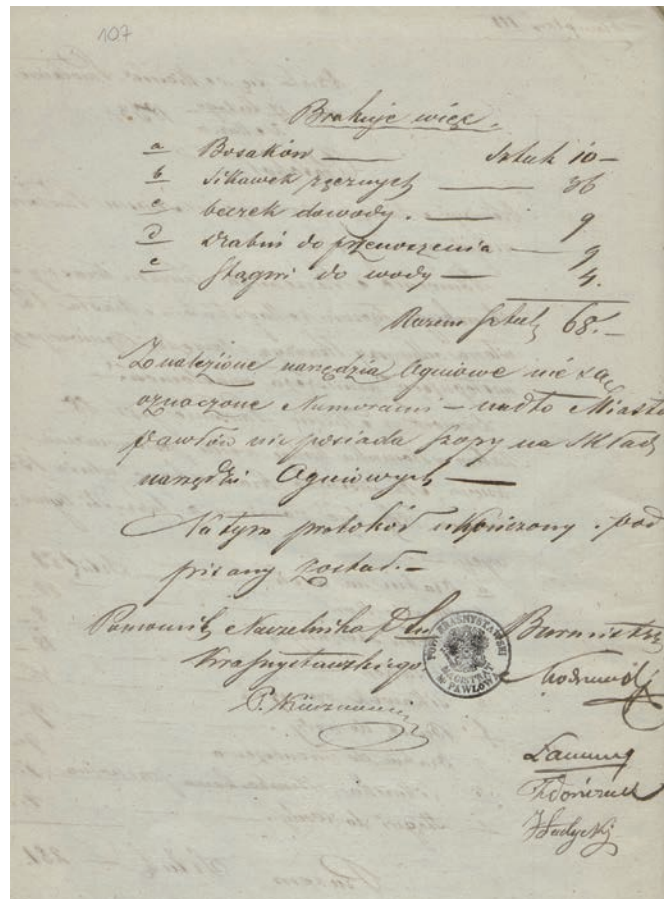 107
Brakuje więc.
a Bosaków — Sztuk 10 —
b Sikawek ręcznych — 36
c beczek do wody. — 9
d Drabin do przenoszenia — 9
e Stągwi do wody — 4.
Razem Sztuk 68. —
Znalezione narzędzia Ogniowe nie są
oznaczone Numerami — nadto Miasto
Pawłów nie posiada szopy na Skład
narzędzi Ogniowych —
Na tym protokół ukończony i pod
pisany został. —
Pomocnik Naczelnika
Krasnystawskiego
Burmistrz
POW. KRASNYSTAWSKI
MAGISTRAT
W PAWŁOWIE